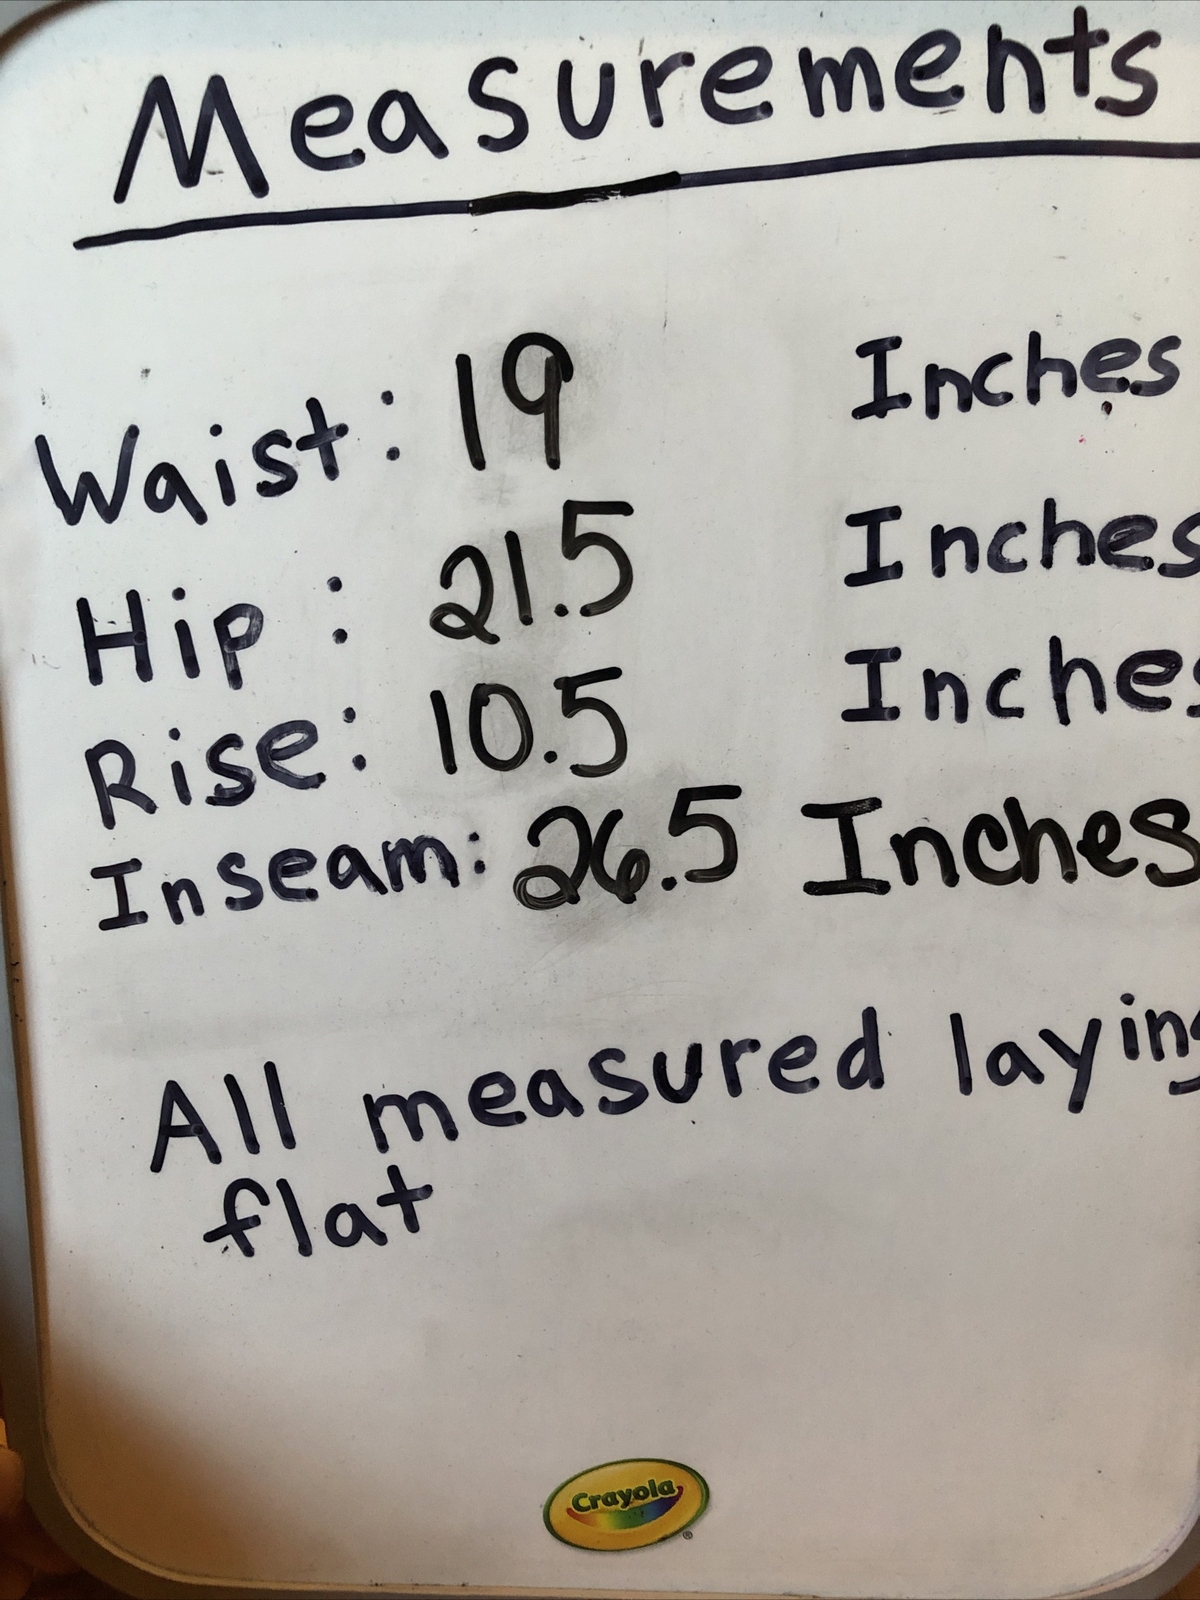 Measurements
Waist: 19 Inches
Hip: 21.5 Inches
Rise: 10.5 Inches
Inseam: 26.5 Inches
All measured laying
flat
Crayola
®